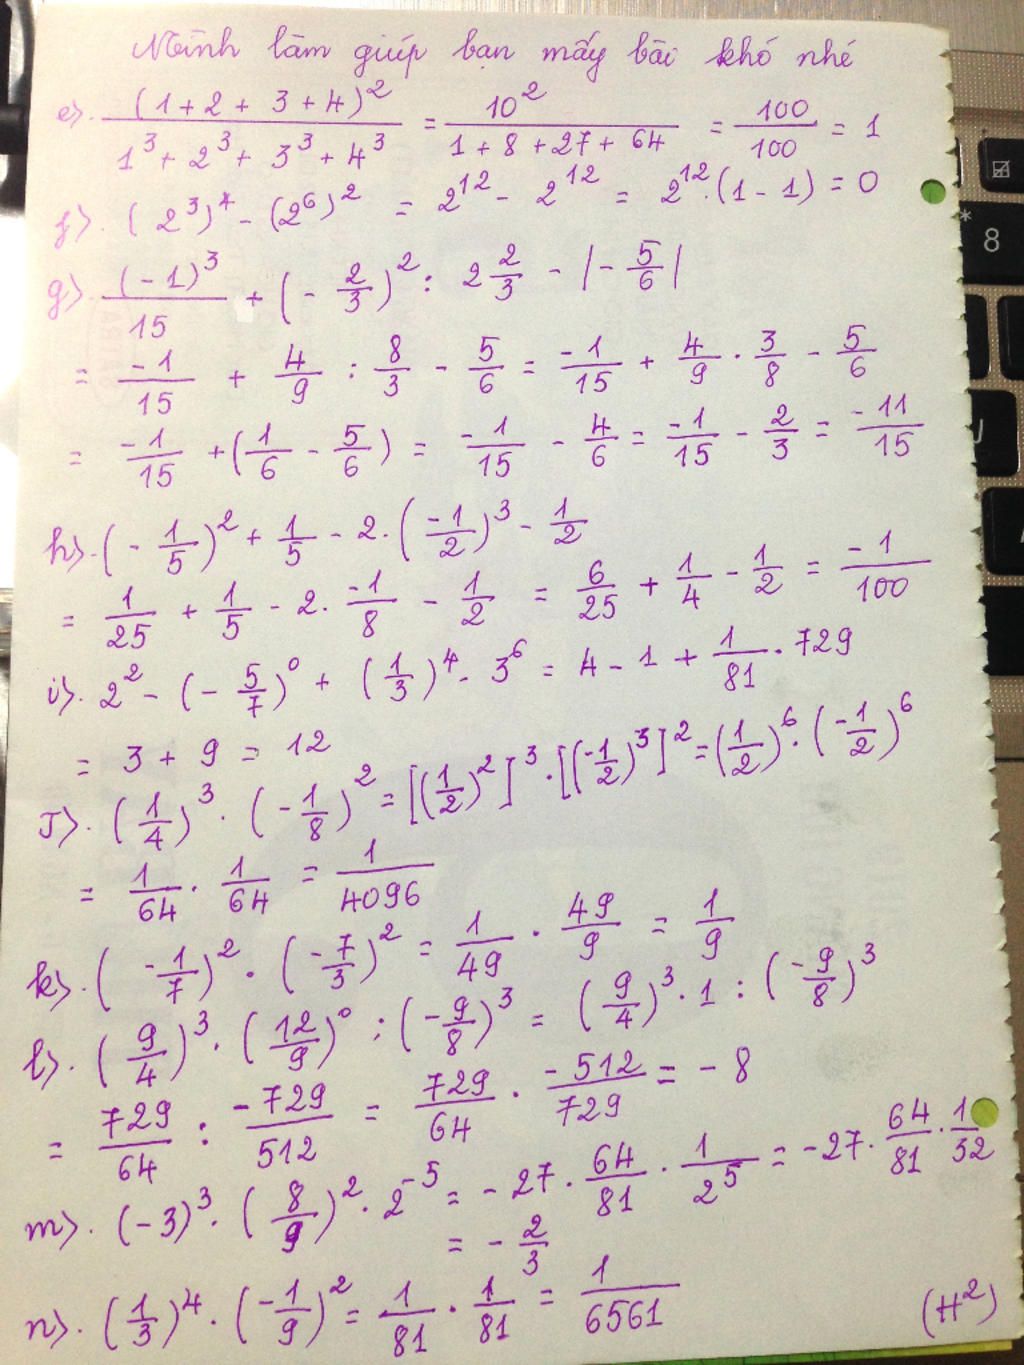 Mình làm giúp bạn mấy bài khó nhé
e). (1+2+3+4)²/(1³+2³+3³+4³) = 10²/(1+8+27+64) = 100/100 = 1
f). (2³)⁴ - (2⁶)² = 2¹² - 2¹² = 2¹².(1-1) = 0
g). (-1)³/15 + (-2/3)² : 2 2/3 - |-5/6|
= -1/15 + 4/9 : 8/3 - 5/6 = -1/15 + 4/9 . 3/8 - 5/6
= -1/15 + (1/6 - 5/6) = -1/15 - 4/6 = -1/15 - 2/3 = -11/15
h). (-1/5)² + 1/5 - 2.(-1/2)³ - 1/2
= 1/25 + 1/5 - 2. -1/8 - 1/2 = 6/25 + 1/4 - 1/2 = -1/100
i). 2² - (-5/7)⁰ + (1/3)⁴. 3⁶ = 4 - 1 + 1/81 . 729
= 3 + 9 = 12
J). (1/4)³ . (-1/8)² = [(1/2)²]³ . [(-1/2)³]² = (1/2)⁶ . (-1/2)⁶
= 1/64 . 1/64 = 1/4096
k). (-1/7)² . (-7/3)² = 1/49 . 49/9 = 1/9
l). (9/4)³ . (12/9)⁰ : (-9/8)³ = (9/4)³ . 1 : (-9/8)³
= 729/64 : -729/512 = 729/64 . -512/729 = -8
m). (-3)³ . (8/9)² . 2⁻⁵ = -27 . 64/81 . 1/2⁵ = -27 . 64/81 . 1/32
= -2/3
n). (1/3)⁴ . (-1/9)² = 1/81 . 1/81 = 1/6561
(H²)
8